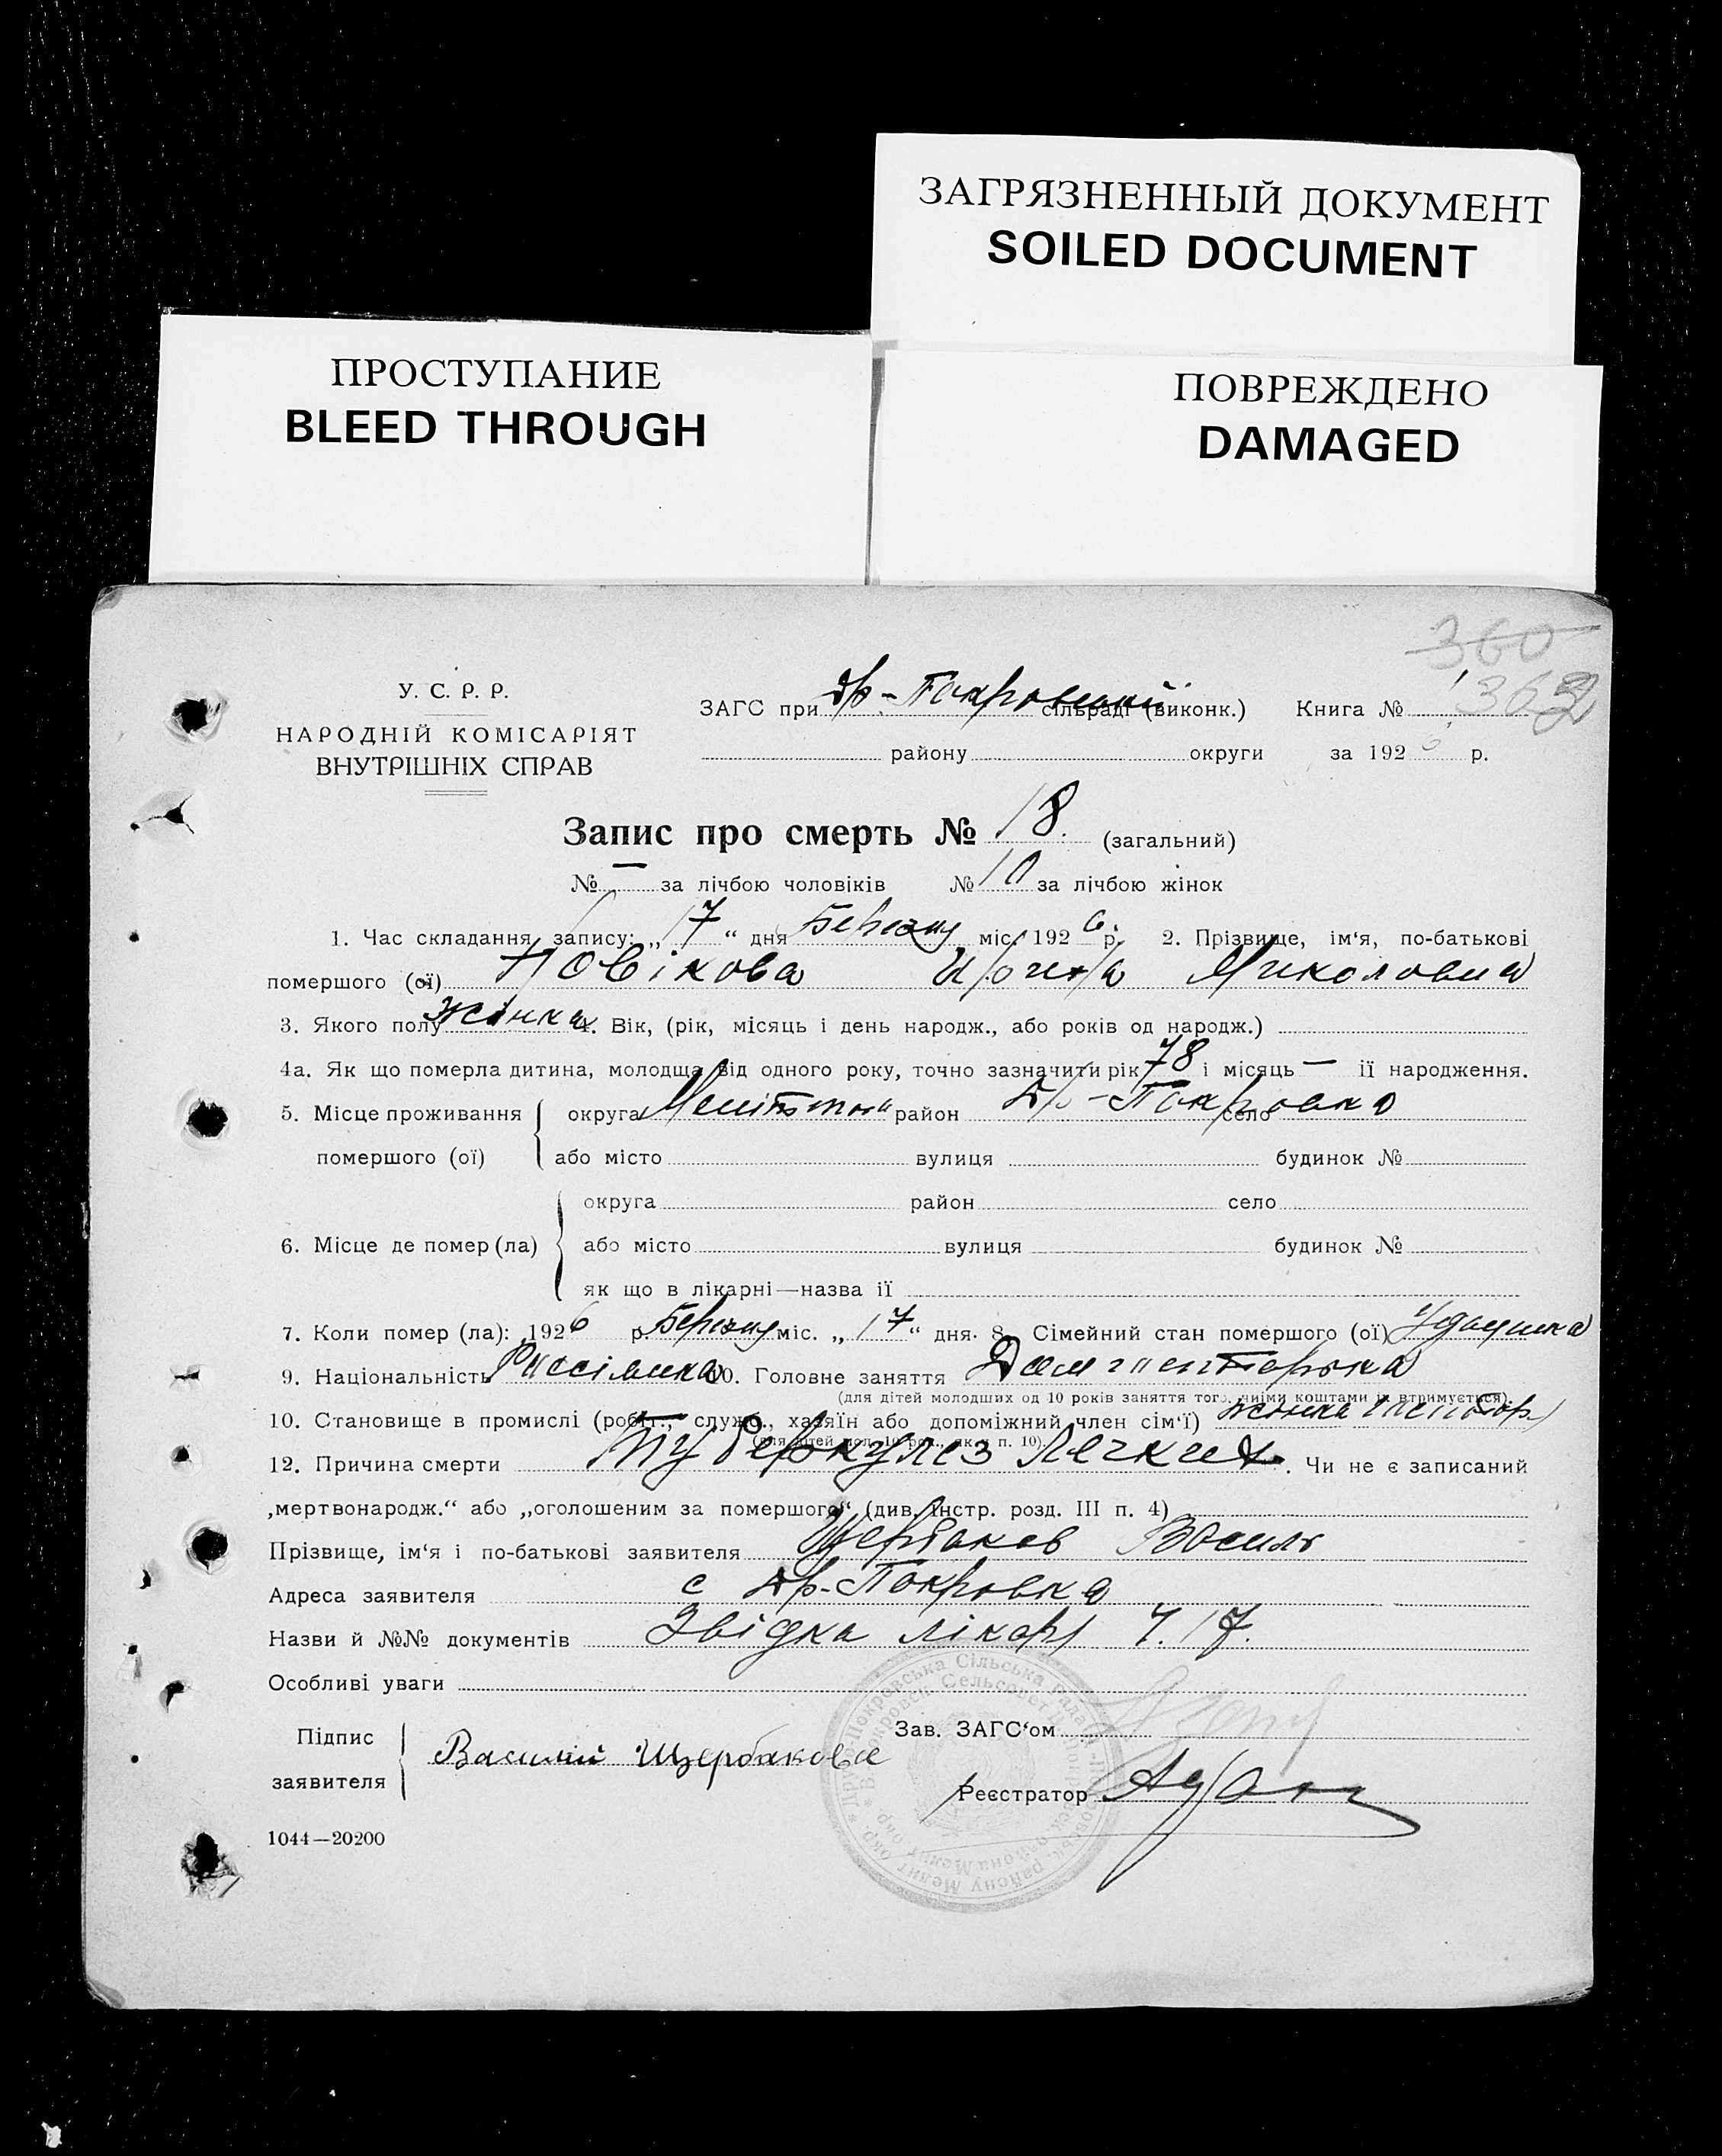 ЗАГРЯЗНЕННЫЙ ДОКУМЕНТ
SOILED DOCUMENT
ПРОСТУПАНИЕ
BLEED THROUGH
ПОВРЕЖДЕНО
DAMAGED
360
362
У. С. Р. Р.
НАРОДНІЙ КОМІСАРІЯТ
ВНУТРІШНІХ СПРАВ
ЗАГС при Др-Покровській сільраді (виконк.) Книга №
району округи за 192 р.
Запис про смерть № 18. (загальний)
№ — за лічбою чоловіків № 10 за лічбою жінок
1. Час складання запису: „17“ дня Березня міс. 1926 р. 2. Прізвище, ім‘я, по-батькові
помершого (ої) Новікова Миколовна
3. Якого полу Жінка 4. Вік, (рік, місяць і день народж., або років од народж.)
4а. Як що померла дитина, молодща від одного року, точно зазначити рік 78 і місяць — її народження.
5. Місце проживання округа район Др-Покровка село
помершого (ої) або місто вулиця будинок №
округа район село
6. Місце де помер (ла) або місто вулиця будинок №
як що в лікарні—назва її
7. Коли помер (ла): 1926 р. Березня міс. „17“ дня. 8. Сімейний стан помершого (ої)
9. Національність 10. Головне заняття
(для дітей молодших од 10 років заняття того, чиїми коштами їх втримується)
10. Становище в промислі (робіт., служб., хазяїн або допоміжний член сім‘ї) жінка
(для дітей мол. 10 рок., як у п. 10)
12. Причина смерти Туберкулез Легких. Чи не є записаний
„мертвонародж.“ або „оголошеним за помершого“ (див. Інстр. розд. III п. 4)
Прізвище, ім‘я і по-батькові заявителя Щербаков Василь
Адреса заявителя с Др-Покровка
Назви й №№ документів Звідка лікаря Ч. 17.
Особливі уваги
Підпис
заявителя
Василий Щербакова
Зав. ЗАГС‘ом
Реєстратор
1044—20200